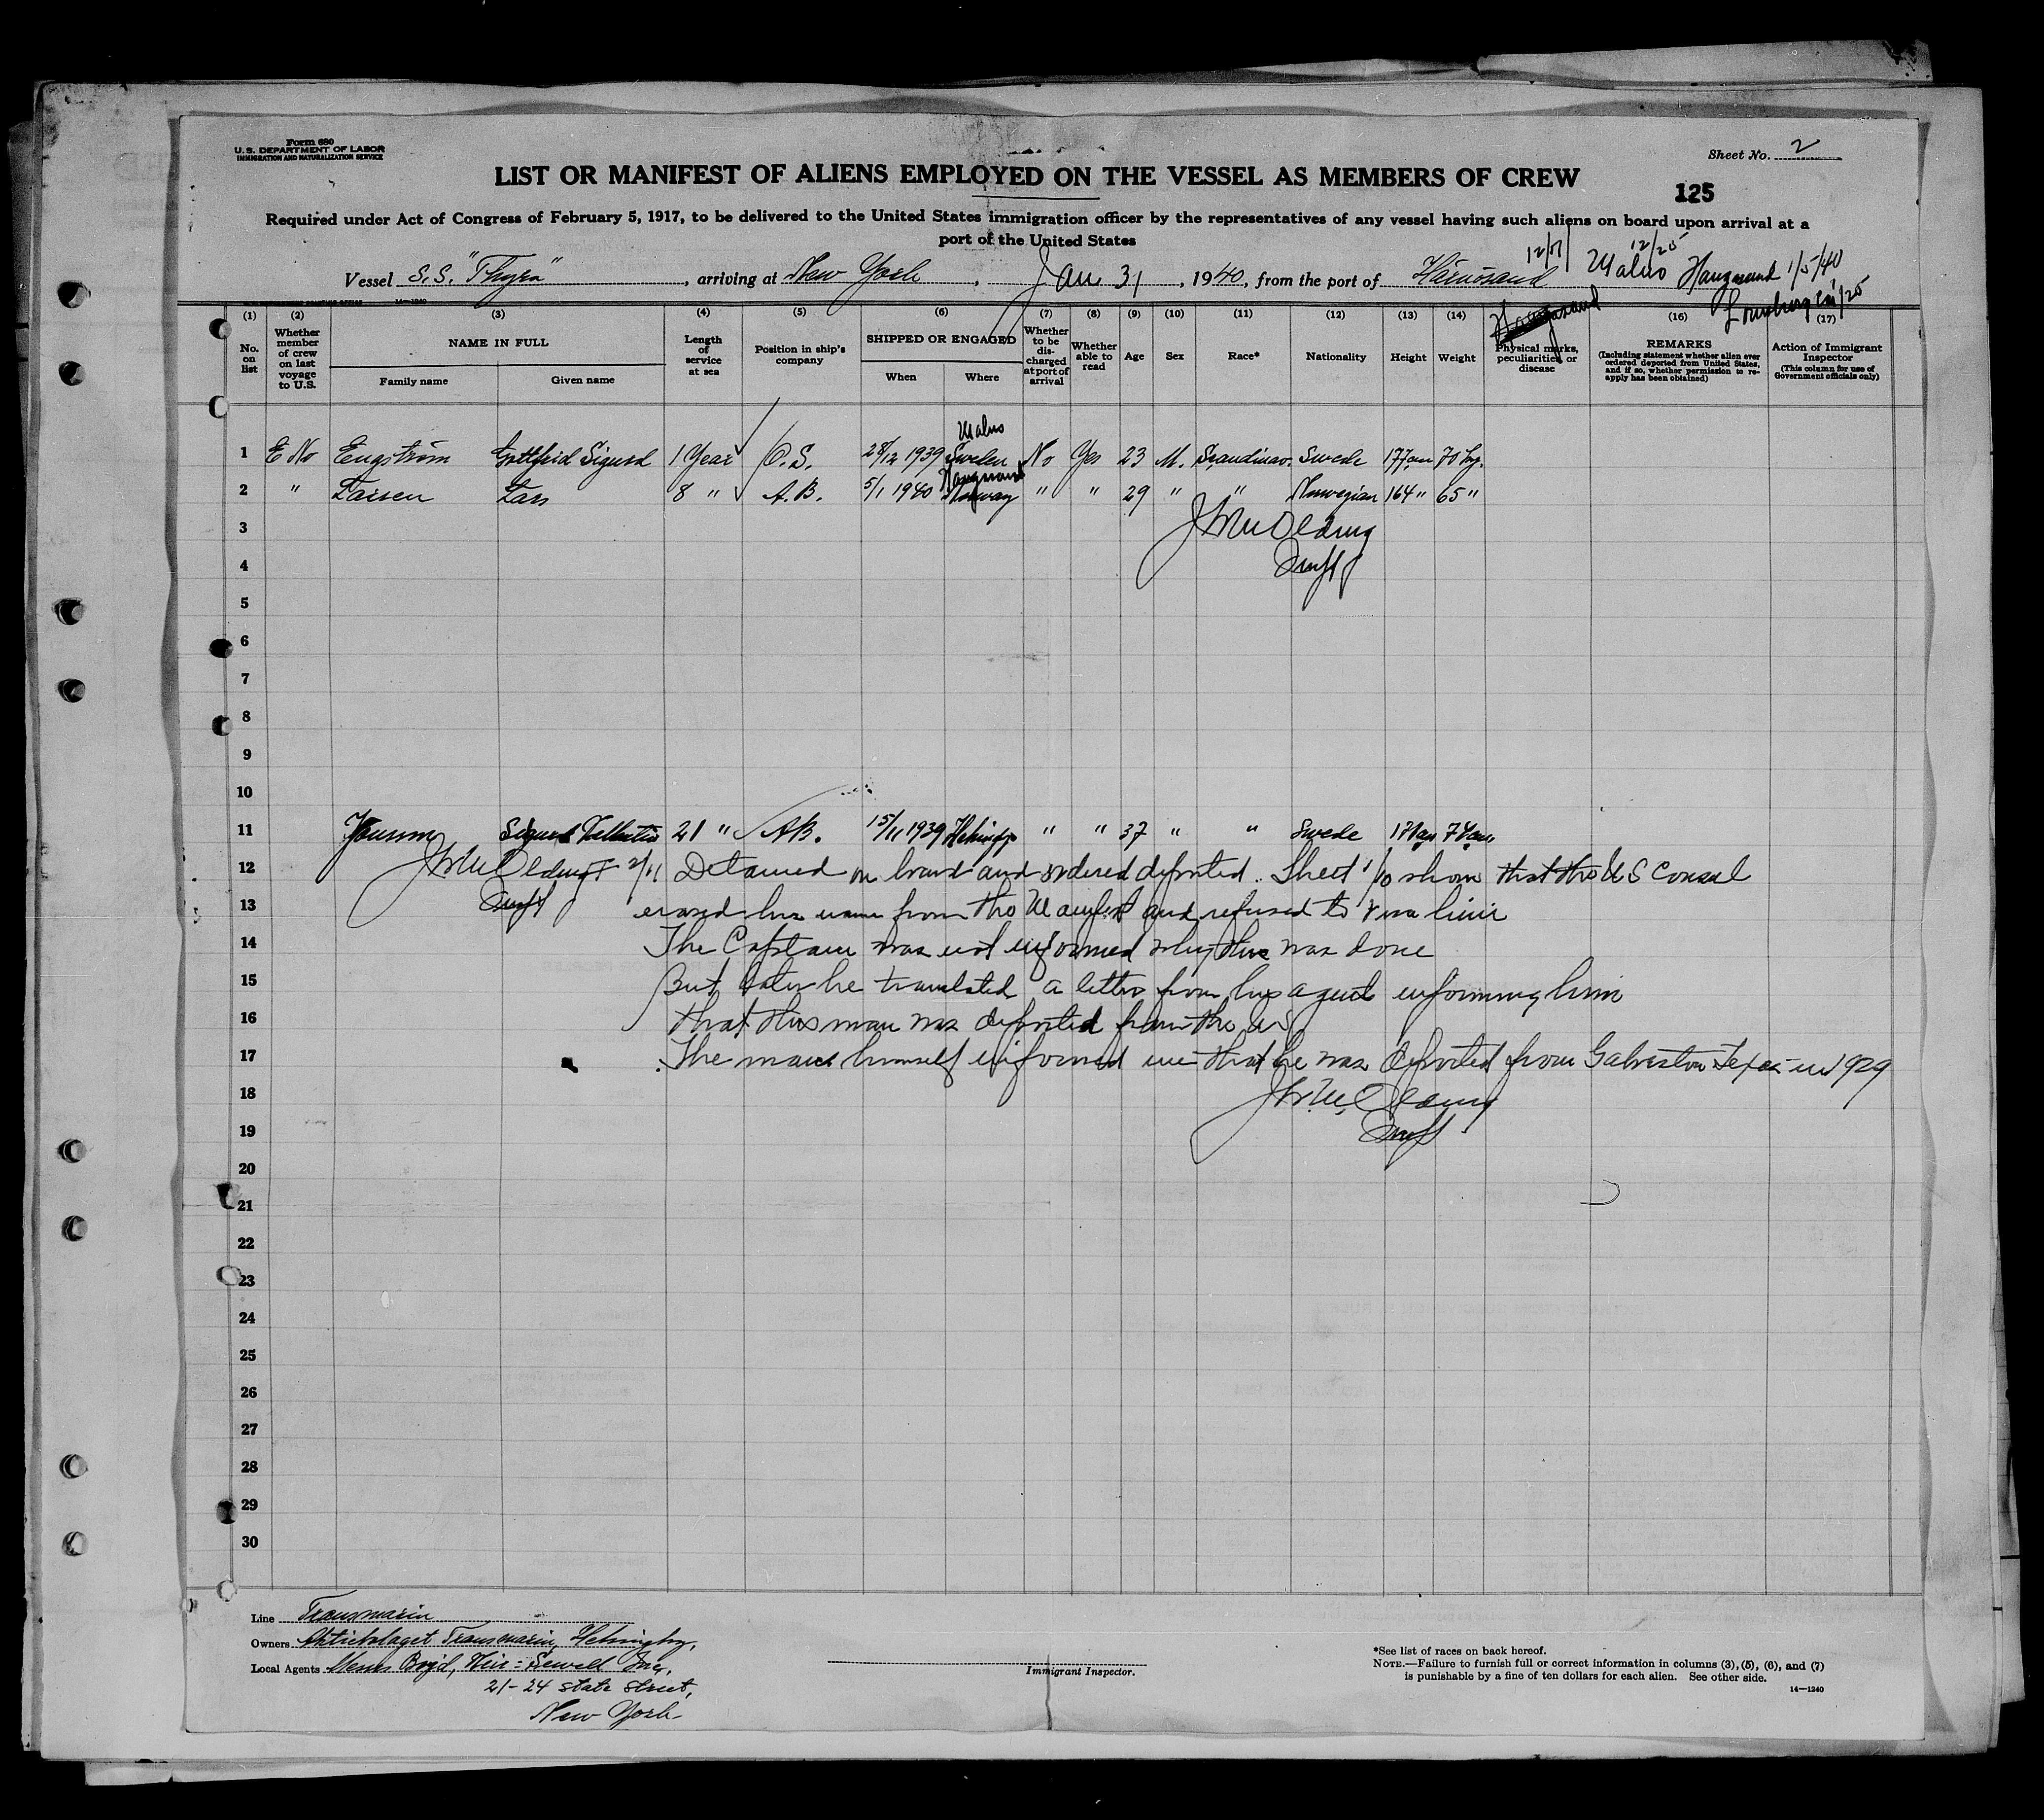 Form 680
U.S. DEPARTMENT OF LABOR
IMMIGRATION AND NATURALIZATION SERVICE
Sheet No. 2
LIST OR MANIFEST OF ALIENS EMPLOYED ON THE VESSEL AS MEMBERS OF CREW
125
Required under Act of Congress of February 5, 1917, to be delivered to the United States immigration officer by the representatives of any vessel having such aliens on board upon arrival at a
port of the United States
12/25
Vessel S.S. "Thyra", arriving at New York, Jan 31, 1940, from the port of Härnösand Malmo Haugesund 1/5/40
14—1240
(1) (2) (3) (4) (5) (6) (7) (8) (9) (10) (11) (12) (13) (14) (16) (17)
No. on list
Whether member of crew on last voyage to U.S.
NAME IN FULL
Family name Given name
Length of service at sea
Position in ship's company
SHIPPED OR ENGAGED
When Where
Whether to be discharged at port of arrival
Whether able to read
Age Sex Race* Nationality Height Weight
Physical marks, peculiarities or disease
REMARKS
(Including statement whether alien ever ordered deported from United States, and if so, whether permission to reapply has been obtained)
Action of Immigrant Inspector
(This column for use of Government officials only)
Malmo
1 E No Engström Gottfrid Sigurd 1 Year O.S. 28/12 1939 Sweden No Yes 23 M. Scandinav. Swede 177 cm 70 kg.
Haugesund
2 " Larsen Lars 8 " A.B. 5/1 1940 Norway " " 29 " " Norwegian 164 " 65 "
3
4
5
6
7
8
9
10
11 Sigurd 21 " AB. 15/11 1939 " " 37 " " Swede
12 Detained on board and ordered deported. Sheet show that the US Consul
13 erased his name from the Manifest and refused to visa him
14 The Captain was not informed why this was done
15 But later he translated a letter from his agent informing him
16 that this man was deported from the US
17 The man himself informed me that he was deported from Galveston Texas in 1929
18
19
20
21
22
23
24
25
26
27
28
29
30
Line Transmarin
Owners Aktiebolaget Transmarin, Helsingborg.
Local Agents Messrs Boyd, Weir & Sewell Inc,
21-24 State Street,
New York.
Immigrant Inspector.
*See list of races on back hereof.
NOTE.—Failure to furnish full or correct information in columns (3), (5), (6), and (7)
is punishable by a fine of ten dollars for each alien. See other side.
14—1240